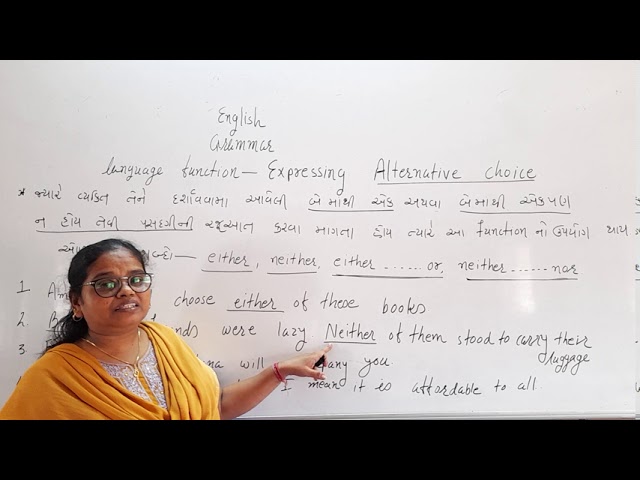 English
Grammar
Language function — Expressing Alternative choice
* જ્યારે વ્યક્તિ તેને દર્શાવવામાં આવેલી બેમાંથી એક અથવા બેમાંથી એકપણ
ન હોય તેવી પસંદગીની રજૂઆત કરવા માગતા હોય ત્યારે આ function નો ઉપયોગ થાય
— either, neither, either ...... or, neither ...... nor
1 choose either of these books
2. were lazy Neither of them stood to carry their luggage
3 will you.
I mean it is affordable to all